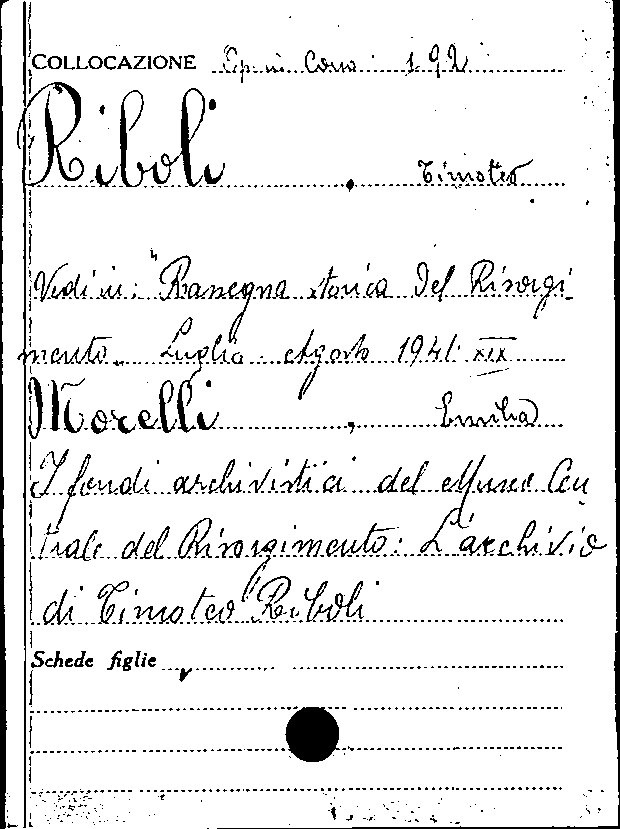 COLLOCAZIONE Ep. in Corso 192
Riboli, Timoteo
Vedi in: "Rassegna storica del Risorgi-
mento" Luglio Agosto 1941. XIX
Morelli, Emilia
I fondi archivistici del Museo Cen
trale del Risorgimento: L'archivio
di Timoteo Riboli
Schede figlie